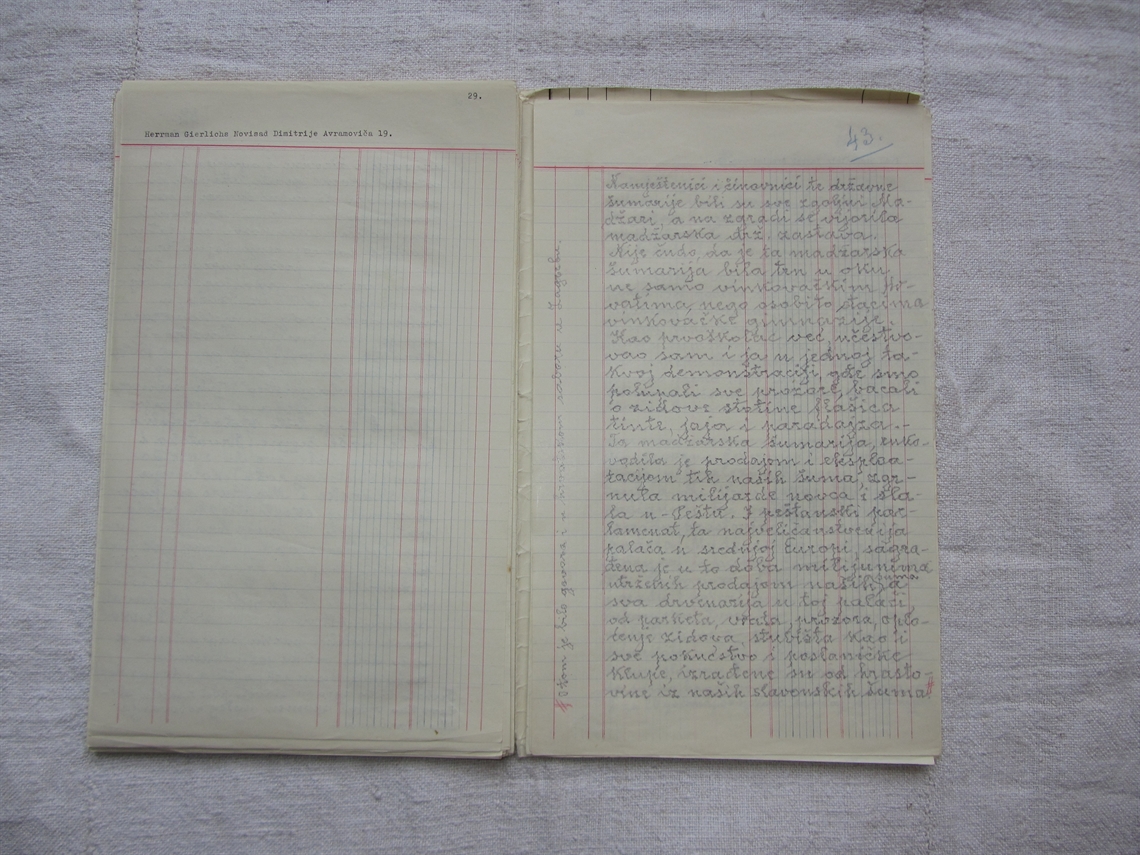 29.
Herrman Gierlichs Novisad Dimitrije Avramovića 19.
43.
Namještenici i činovnici te državne
šumarije bili su sve zgoljni Ma-
džari, a na zgradi se vijorila
madžarska drž. zastava.
Nije čudo, da je ta madžarska
šumarija bila trn u oku
ne samo vinkovačkim Hr-
vatima, nego osobito đacima
vinkovačke gimnazije.
Kao prvoškolac već učestvo-
vao sam i ja u jednoj ta-
kvoj demonstraciji, gdje smo
polupali sve prozore, bacali
o zidove stotine flašica
tinte, jaja i paradajza.-
Ta madžarska šumarija, ruko-
vodila je prodajom i eksploa-
tacijom tih naših šuma, zgr-
nula milijarde novca i sla-
la u Peštu. I peštanski par-
lamenat, ta najveličanstvenija
palača u srednjoj Europi, sagra-
đena je u to doba milijunima
utrženih prodajom naših šuma, a
sva drvenarija u toj palači,
od parketa, vrata, prozora, oplo-
čenje zidova, stubišta kao i
sve pokućstvo i poslaničke
klupe, izrađene su od hrasto-
vine iz naših slavonskih šuma #
# O tom je bilo govora i u hrvatskom saboru u Zagrebu.